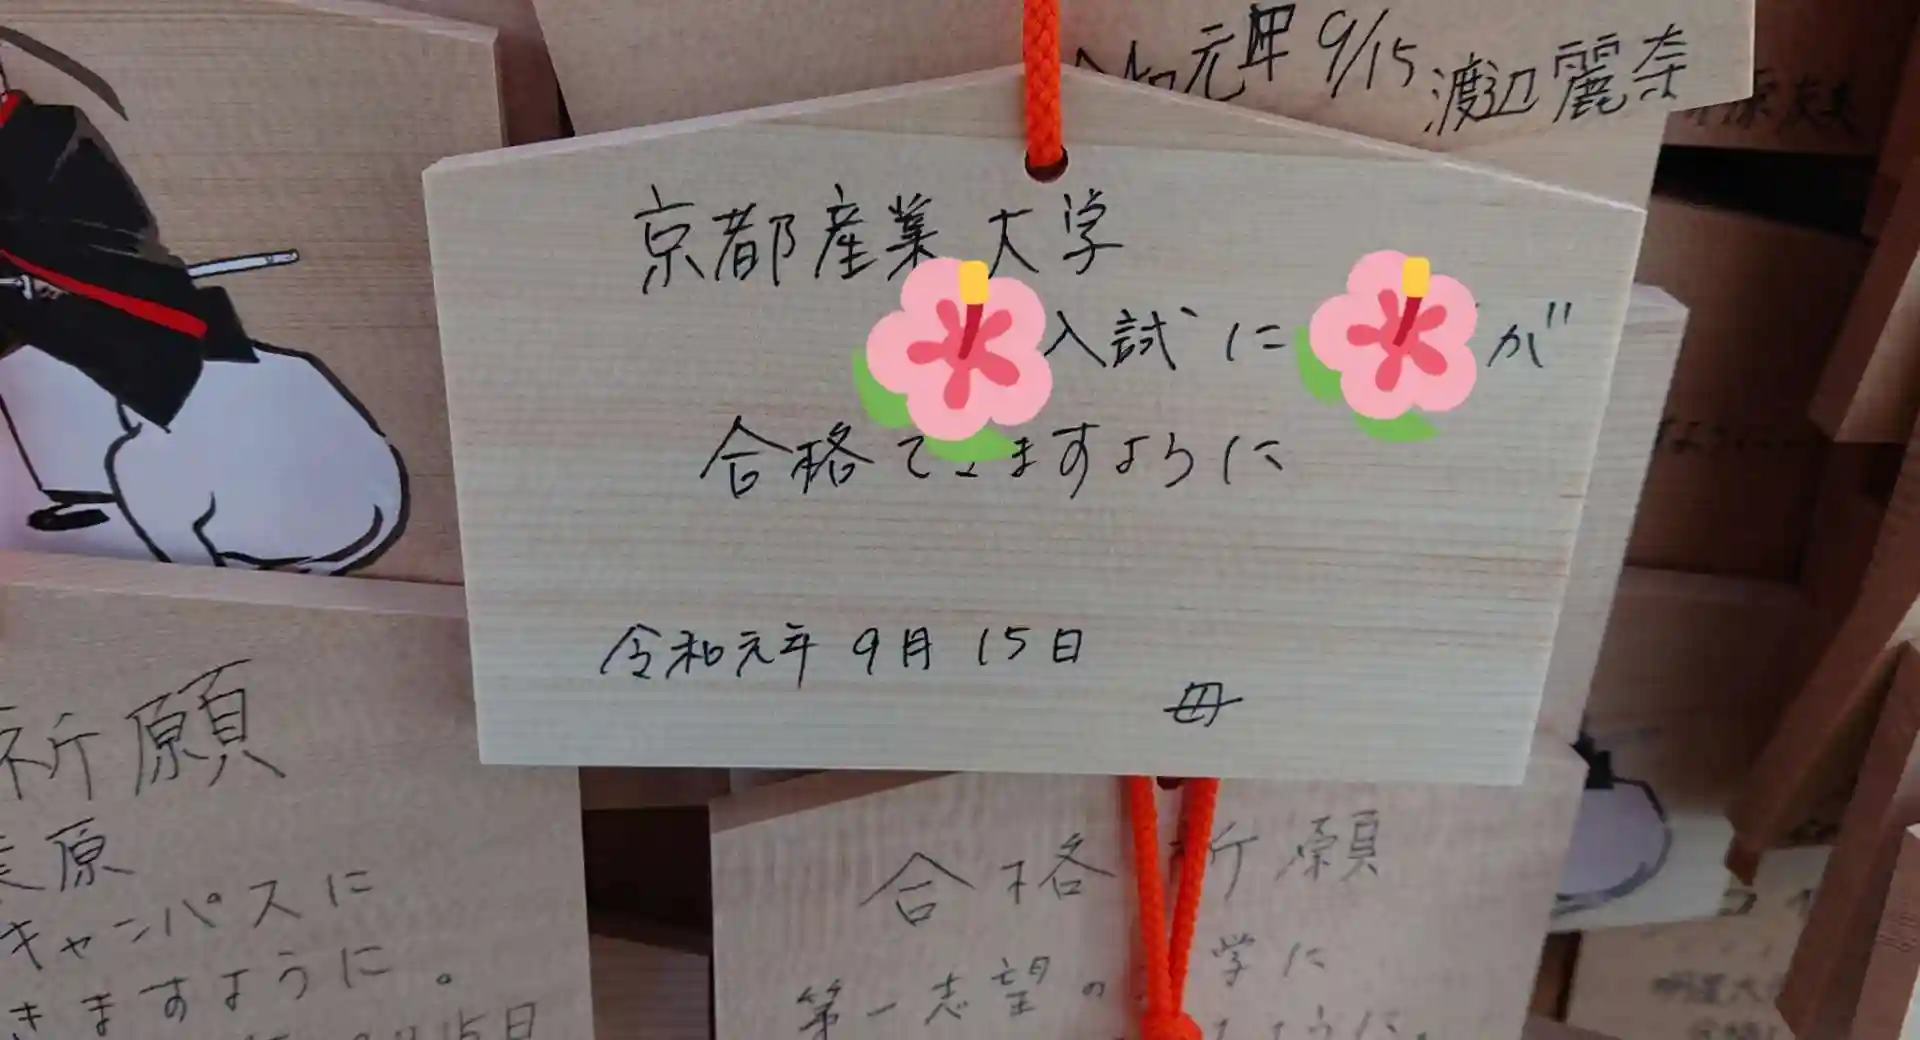 元年 9/15 渡辺麗奈
京都産業大学
入試に が
合格できますように
令和元年 9月 15日
母
祈願
原
キャンパスに
きますように。
15日
合格祈願
第一志望の 学に
ように。